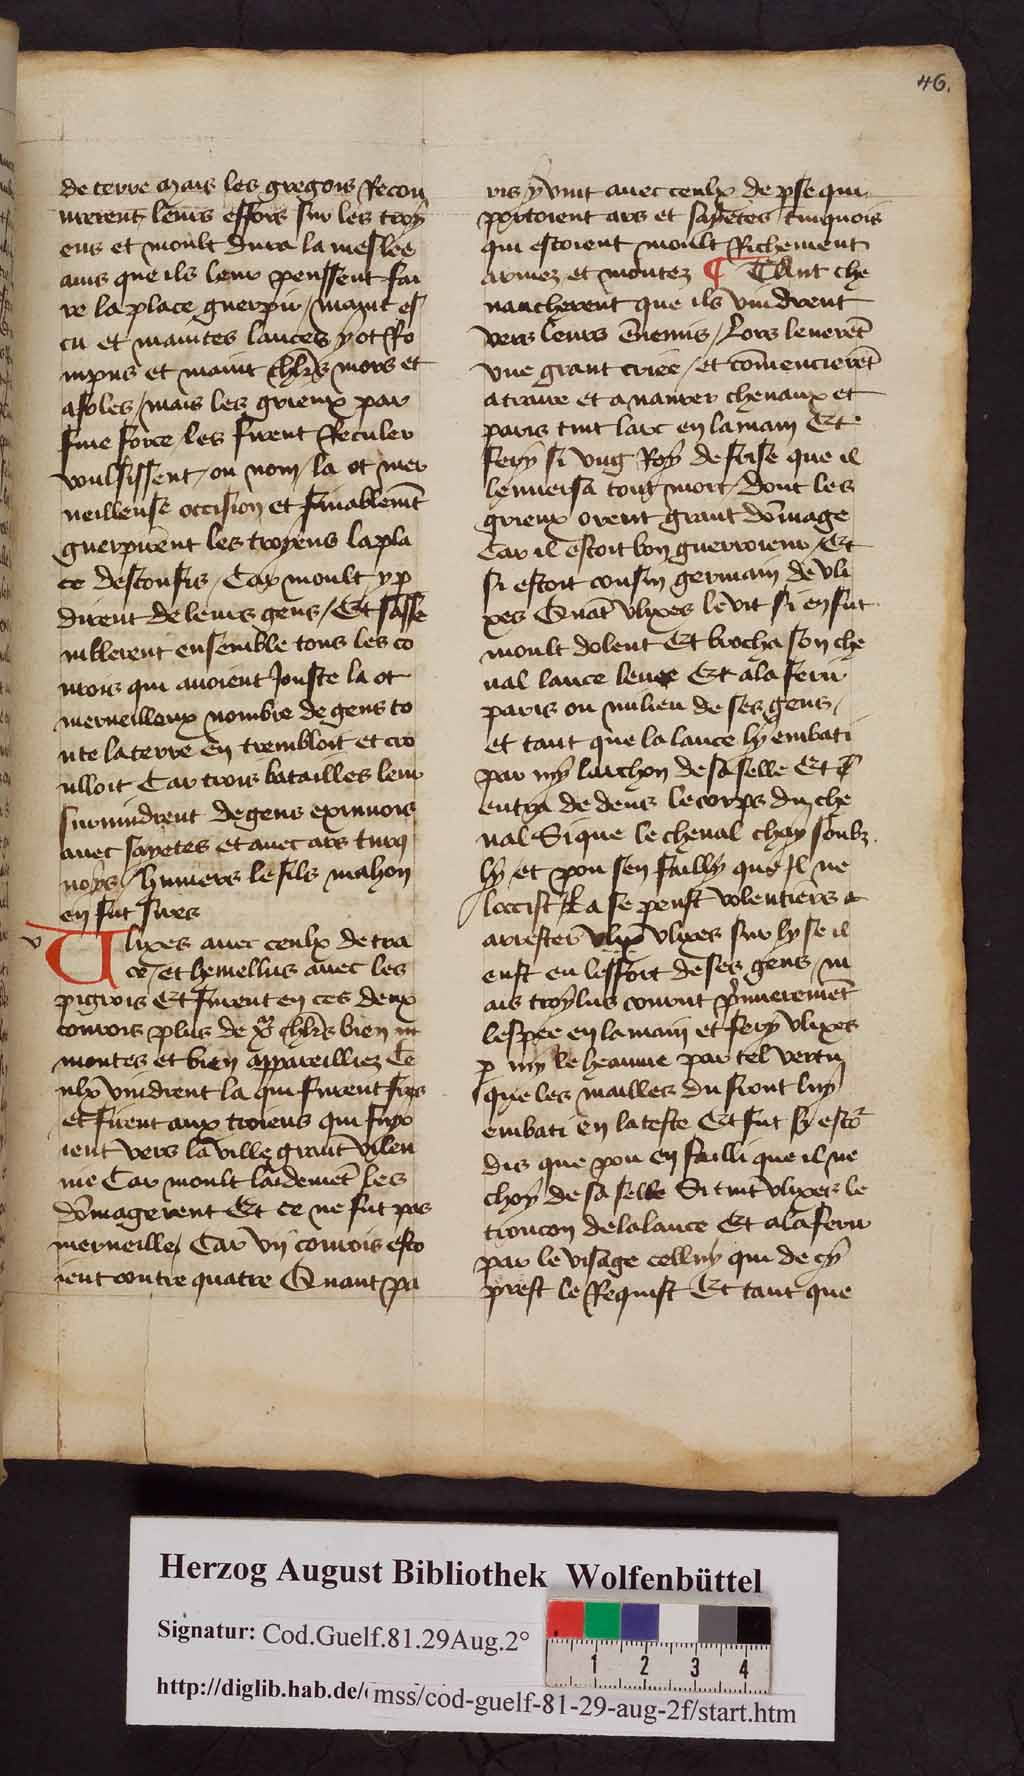 46.
de terre mais les gregois Recou
urerent leurs effors sur les troy
ens et moult dura la meslee
ains que ils leur peussent fai
re la place guerpir / maint es
cu et maintes lances y ot Ro
mpus et maint chlrs mors et
afoles / mais les grieux par
fine force / les firent Reculer
voulsissent / ou nom / la ot mer
ueilleuse occision et finablemt
guerpirent les troyens la pla
ce desconfis / Car moult y p
dirent de leurs gens / Et sasse
mblerent ensemble tous les co
nrois qui auoient Jouste la ot
merueilleux nombre de gens to
ute la terre en trembloit et cro
ulloit Car trois batailles leur
suruindrent de gens
auec sayetes et auec ars turq
noys / humers le fils mahon
en fut sires
v
Ulixes auec ceulx de tra
ce / et hemellus auec les
pigrois Et furent en ces deux
conrois plus de chlrs bien
montes et bien appareilliez Ce
ulx vindrent la qui furent fres
et firent aux troiens qui fuyo
ient vers la ville grant villen
nie Car moult laidemet les
domagerent Et ce ne fut pas
merueille / Car vij conrois esto
ient contre quatre Quant pa
ris y vint auec ceulx de pse qui
portoient ars et sayetes turquois
qui estoient moult Richement
armez et montez ¶ TAnt che
uaucherent que ils vindrent
vers leurs enemis / Lors leueret
vne grant criee / et comencieret
a traire et a naurer cheuaux et
paris tint larc en la main Et
fery si vng Roy de frise que il
lenuersa tout mort / dont les
grieux orent grant domage
Car il estoit bon guerroieur / Et
si estoit cousin germain de vli
xes Quat vlixes le vit si en fut
moult dolent Et brocha son che
ual lance leuee Et ala ferir
paris ou milieu de ses gens /
et tant que la lance ly embati
par my larchon de sa selle Et
entra de dens le corps du che
ual Si que le cheual chay soubz
ly / et pou sen failly que Il ne
loccist / La se peust volentiers
arrester vlix vlixes sur ly se il
eust eu leffort de ses gens / m
ais troylus courut pmieremet
lespee en la main et fery vlixes
p my le heaume par tel vertu
que les mailles du front luy
embati en la teste Et fut sy esto
dis que pou en failli que il ne
choy de sa selle Si tint vlixes le
troncon de la lance Et ala ferir
par le visage celluy qui de cy
prest le Requist Et tant que
Herzog August Bibliothek Wolfenbüttel
Signatur: Cod.Guelf.81.29Aug.2°
1 2 3 4
http://diglib.hab.de/mss/cod-guelf-81-29-aug-2f/start.htm